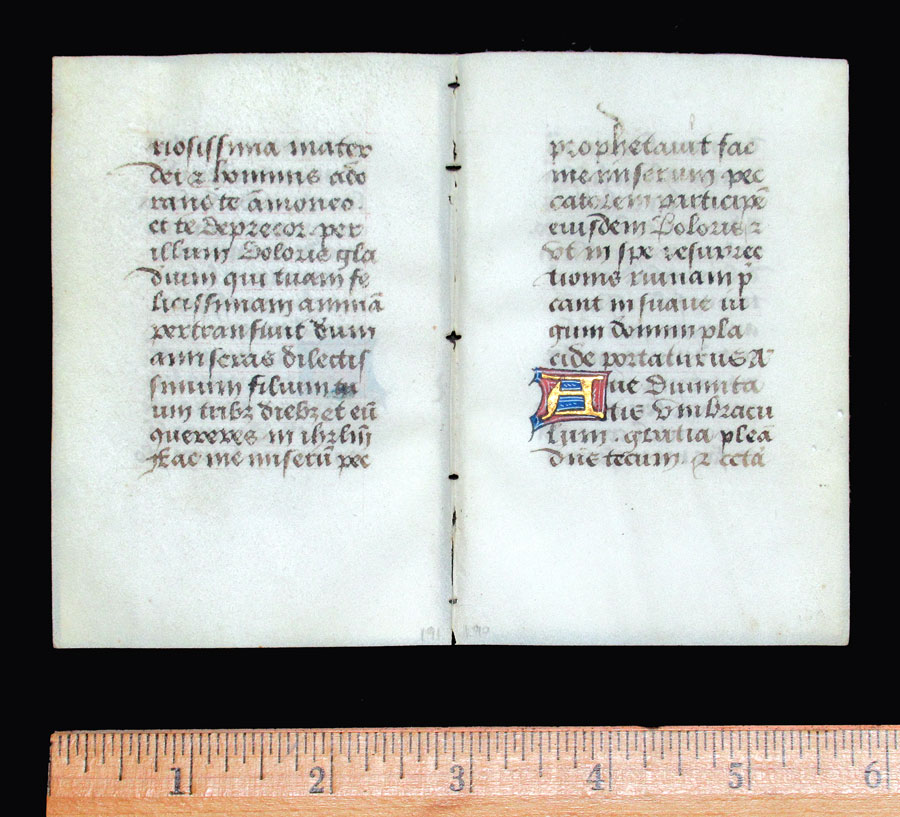 riosissima mater
dei z hominis ado
rans te amoneo.
et te deprecor per
illum doloris gla
dium qui tuam fe
licissimam animā
pertransiuit dum
amiseras dilectis
simum filium tu
um tribz diebz et eū
quereres in ihrlm̄
Fac me miserū pec
prophetauit fac
me miserum pec
catorem participē
eiusdem doloris z
vt in spe resurrec
tionis
cant in suaue iu
gum domini pla
cide portaturus A
Aue Diuinita
tis Vmbracu
lum. gratia pleā
dn̄s tecum. z cetā
191 190
1 2 3 4 5 6